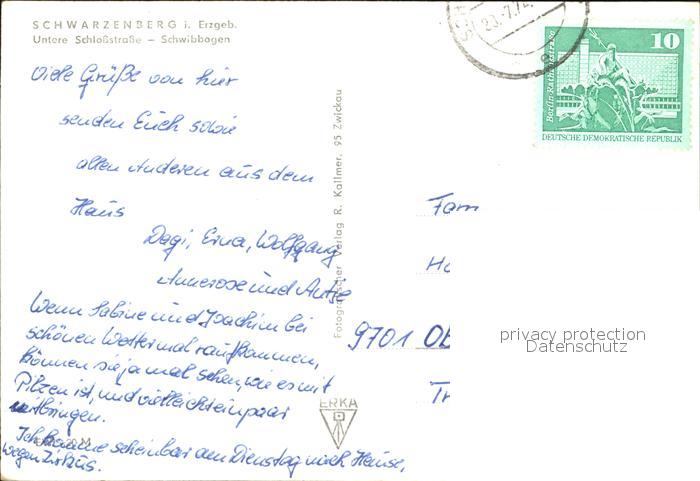 SCHWARZENBERG i. Erzgeb.
Untere Schloßstraße – Schwibbogen
23.7.7
10
Berlin Rathausstrasse
DEUTSCHE DEMOKRATISCHE REPUBLIK
Viele Grüße von hier
senden Euch sowie
allen Anderen aus dem
Haus
Dagi, Erna, Wolfgang
Annerose und Antje
Wenn Sabine und Joachim bei
schönen Wetter mal raufkommen,
können sie ja mal sehen, wie es mit
Pilzen ist, und vielleicht ein paar
mitbringen.
Ich komme scheinbar am Dienstag nach Hause,
wegen Zirkus.
Fotografischer Verlag R. Kallmer, 95 Zwickau
ERKA
Fam
Ho
9701 Ob
Tr
privacy protection
Datenschutz